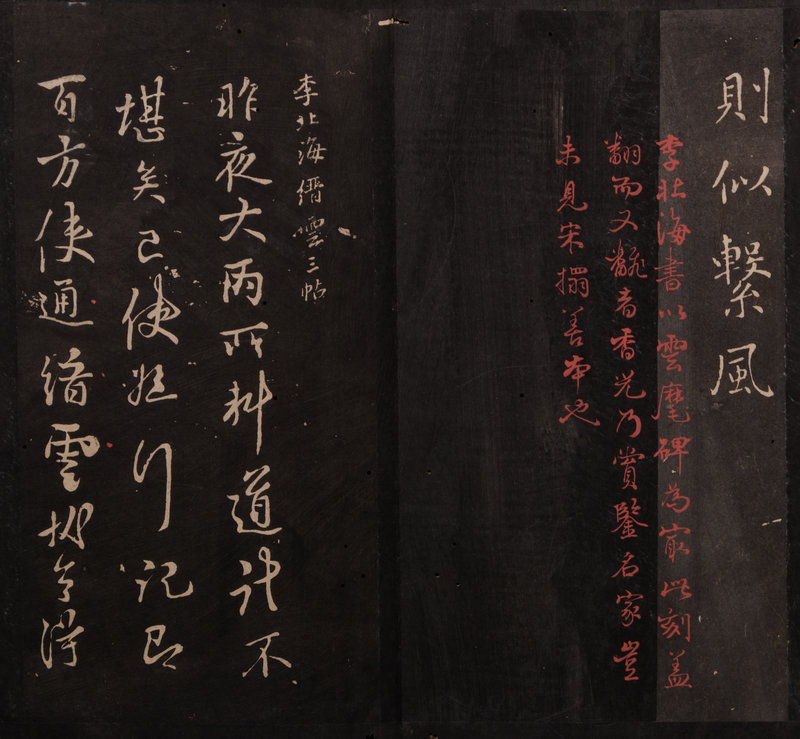 則似繫風
李北海書以雲麾碑為最此刻蓋
翻而又翻者香光乃賞鑒名家豈
未見宋搨善本也
李北海縉雲三帖
昨夜大雨所料道計不
堪矣已使行記即
百方使通縉雲令得